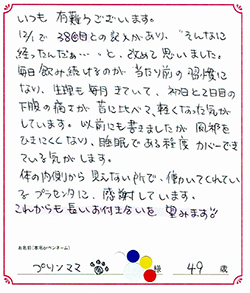 いつも 有難うございます。
12/1で 38回目との記入があり、"そんなに
経ったんだぁ…"と、改めて思いました。
毎日飲み続けるのが 当たり前の 習慣に
なり、生理も毎月 きていて、初日と2日目の
下腹の痛さが 昔に比べて、軽くなった気が
しています。以前にも書きましたが 風邪を
ひきにくくなり、睡眠である程度 カバーでき
ている気がします。
体の内側から 見えない所で、働いてくれてい
るプラセンタに、感謝しています。
これからも長いお付き合いを 望みます!!
お名前(本名かペンネーム)
プリンママ 様 49 歳